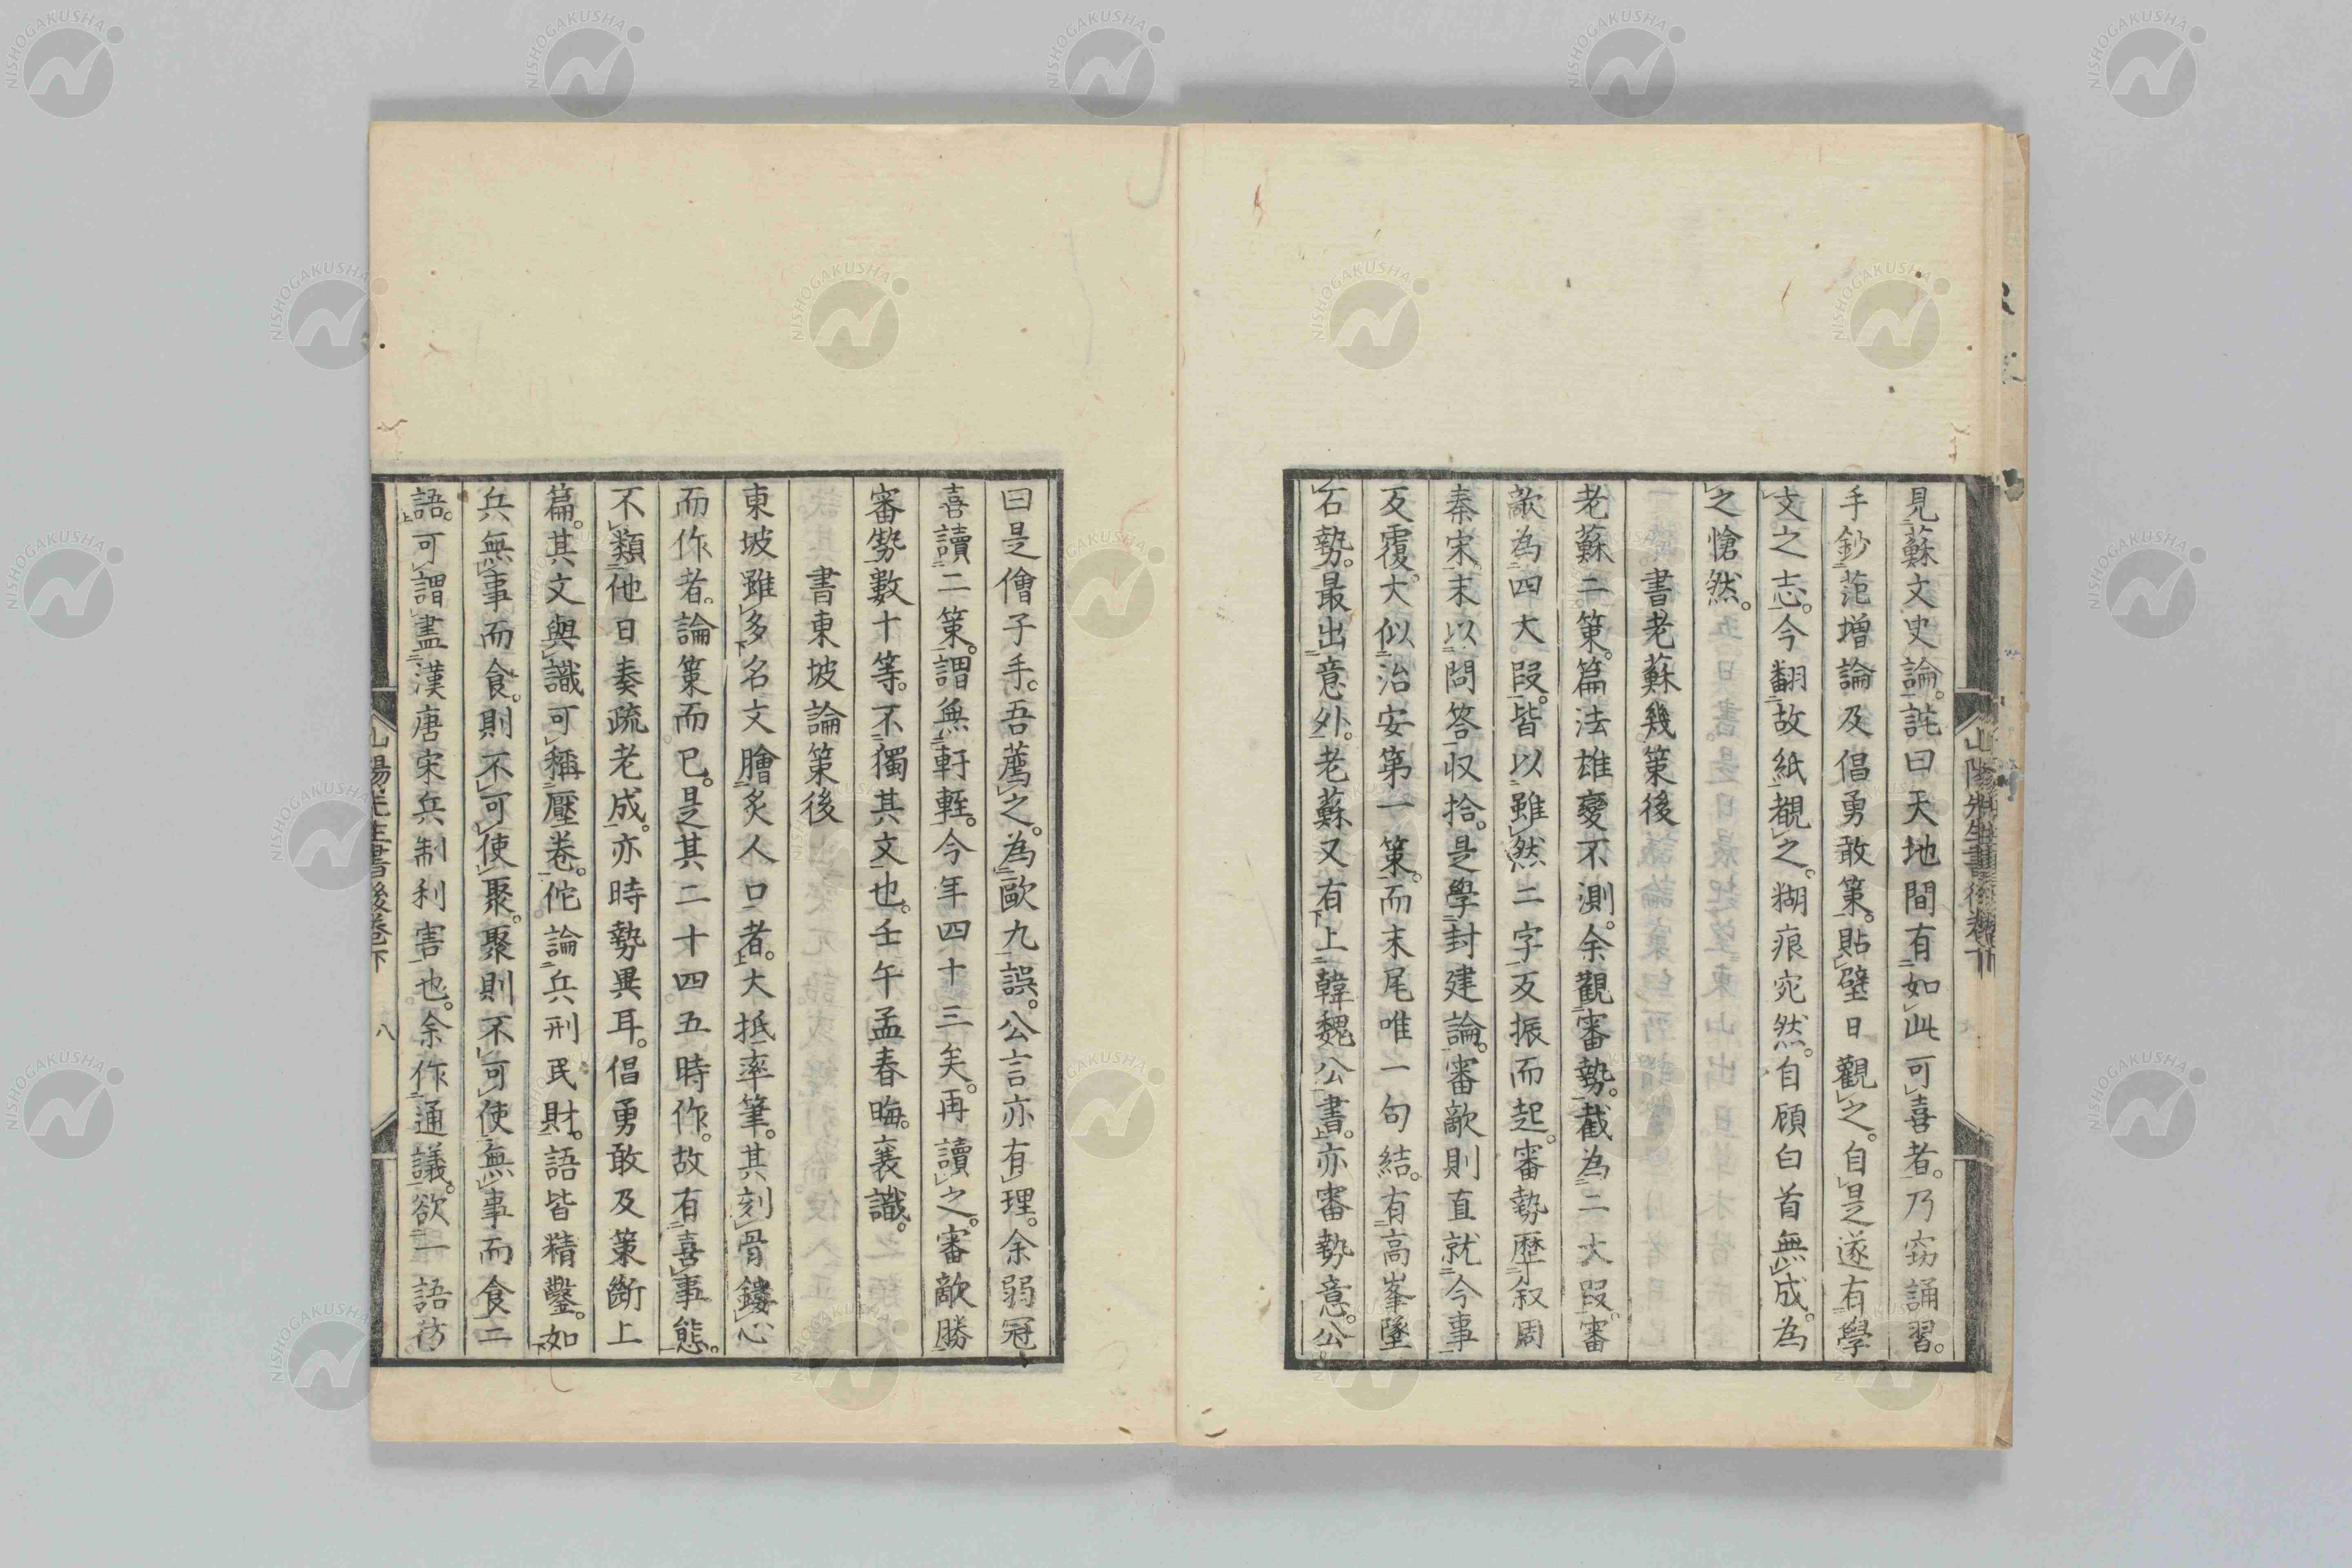 見蘇文史論。詫曰天地間有如此可喜者。乃窃誦習。
手鈔范增論及倡勇敢策。貼壁日觀之。自是遂有學
文之志。今翻故紙覩之。糊痕宛然。自顧白首無成。為
之愴然。
書老蘇幾策後
老蘇二策。篇法雄變不測。余觀審勢。截為二大段。審
敵為四大段。皆以雖然二字反振而起。審勢歷叙周
秦宋末以問答收拾。是學封建論。審敵則直就今事
反覆。大似治安第一策。而末尾唯一句結。有高峯墜
石勢。最出意外。老蘇又有上韓魏公書。亦審勢意。公
山陽先生書後卷下
曰是儈子手。吾薦之。為歐九誤。公言亦有理。余弱冠
喜讀二策。謂無軒輊。今年四十三矣。再讀之。審敵勝
審勢數十等。不獨其文也。壬午孟春晦。襄識。
書東坡論策後
東坡雖多名文膾炙人口者。大抵率筆。其刻骨鏤心
而作者。論策而已。是其二十四五時作。故有喜事態。
不類他日奏疏老成。亦時勢異耳。倡勇敢及策斷上
篇。其文與識可稱壓卷。佗論兵刑民財。語皆精鑿。如
兵無事而食。則不可使聚。聚則不可使無事而食二
語。可謂盡漢唐宋兵制利害也。余作通議。欲一語彷
山陽先生書後卷下
八
NISHOGAKUSHA